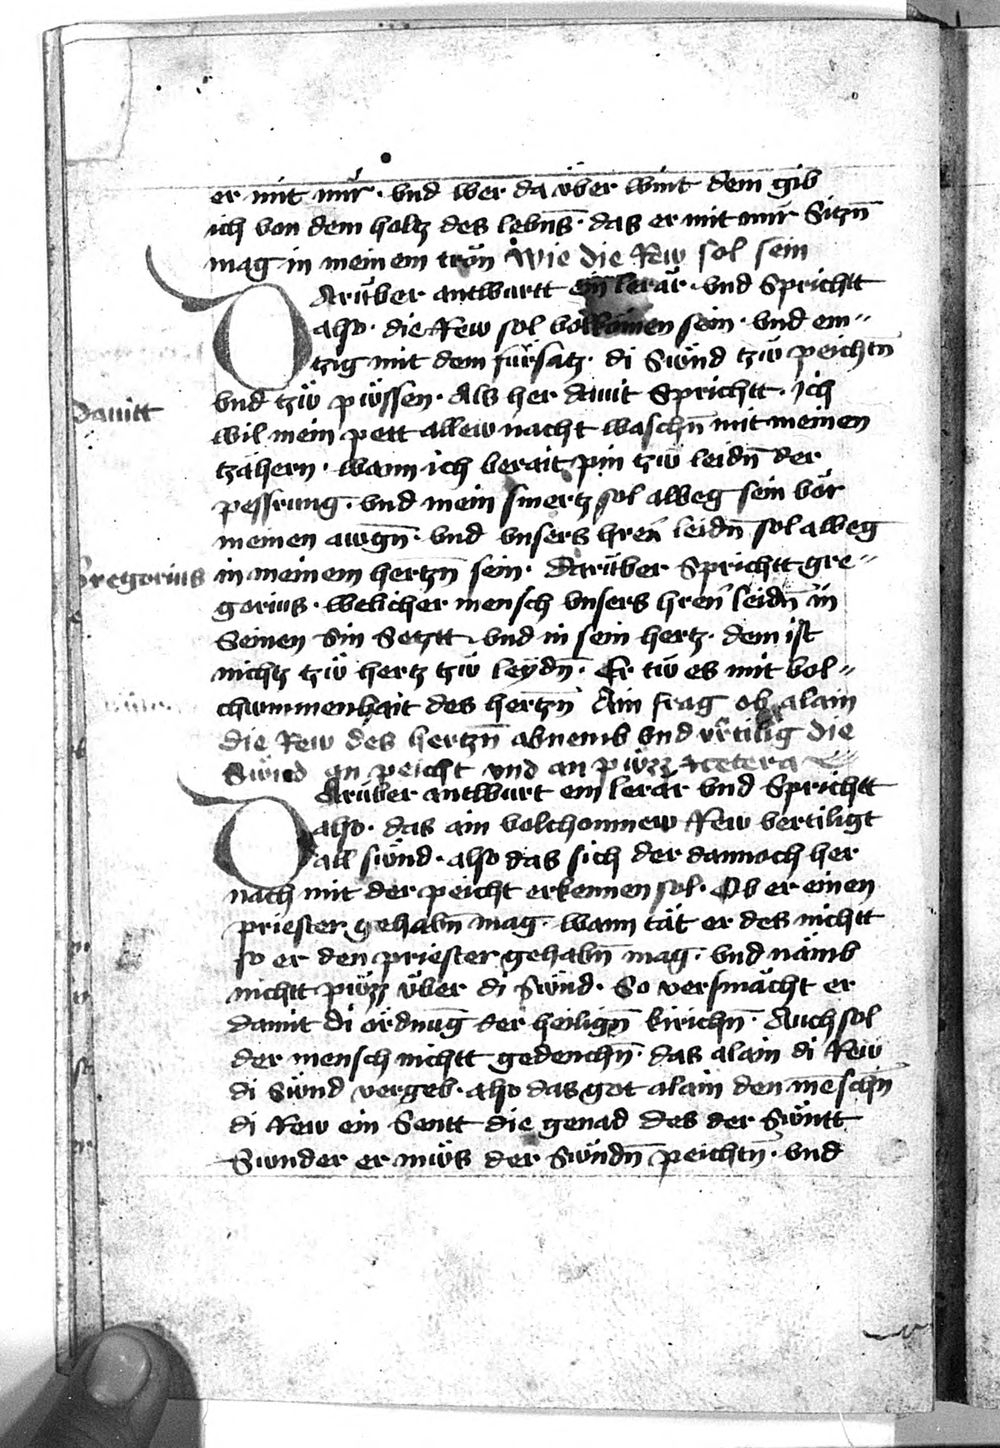 er mit mir · vnd wer da über wint dem gib
ich von dem holtz des lebns̄ · das er mit mir Sitzn̄
mag in meinem tron Wie die Rew sol sein
DArüber antwurtt ein lerär · vnd Sprichtt
also · die Rew sol volkomen sein · vnd em〃
tzig mit dem fürsatz · di Swn̈d tzw̋ peichtn̄
vnd tzw̋ pw̋ssen · Als her dauit Sprichtt · Ich
Dauitt
wil mein pett allew nacht waschn̄ mit meinen
tzähern · wann ich berait pin tzw̋ leidn̄ der
pessrung · vnd mein smertz sol alweg sein vor
meinen awgn̄ · vnd vnsers hren̄ leidn̄ sol alweg
Gregorius
in meinem hertzn̄ sein · Darüber Sprichtt gre〃
gorius · welicher mensch vnsers hren̄ leidn̄ in
Seinen Sin Setztt · vnd in sein hertz · dem ist
nichtz tzw̋ hertz tzw̋ leÿdn̄ · Er tw̋ es mit vol〃
chummenhait des hertzn̄ Ain frag ob alain
die Rew des hertzn̄ abnemb vnd vertilig die
Swn̈d an peicht vnd an pw̋zz etcetera
DArüber antwurt ein lerär vnd Sprichtt
also · das ain volchommew Rew vertiligt
all swn̈d · also das sich der dannoch her
nach mit der peicht erkennen sol · Ob er einen
priester gehabn̄ mag · wann tät er des nichtt
so er den priester gehabn̄ mag · vnd nämb
nichtt pw̋zz über di Swn̈d · So versmächt er
damit di ordnūg der heilign̄ kirichn̄ · Auch sol
der mensch nichtt gedenchn̄ · das alain di Rew
di Swn̈d vergeb · also das got alain den meschn̄
di Rew ein Sentt die genad des der Swn̈tt
Swnder er mw̋s der Swn̈dn̄ peichtn̄ · vnd